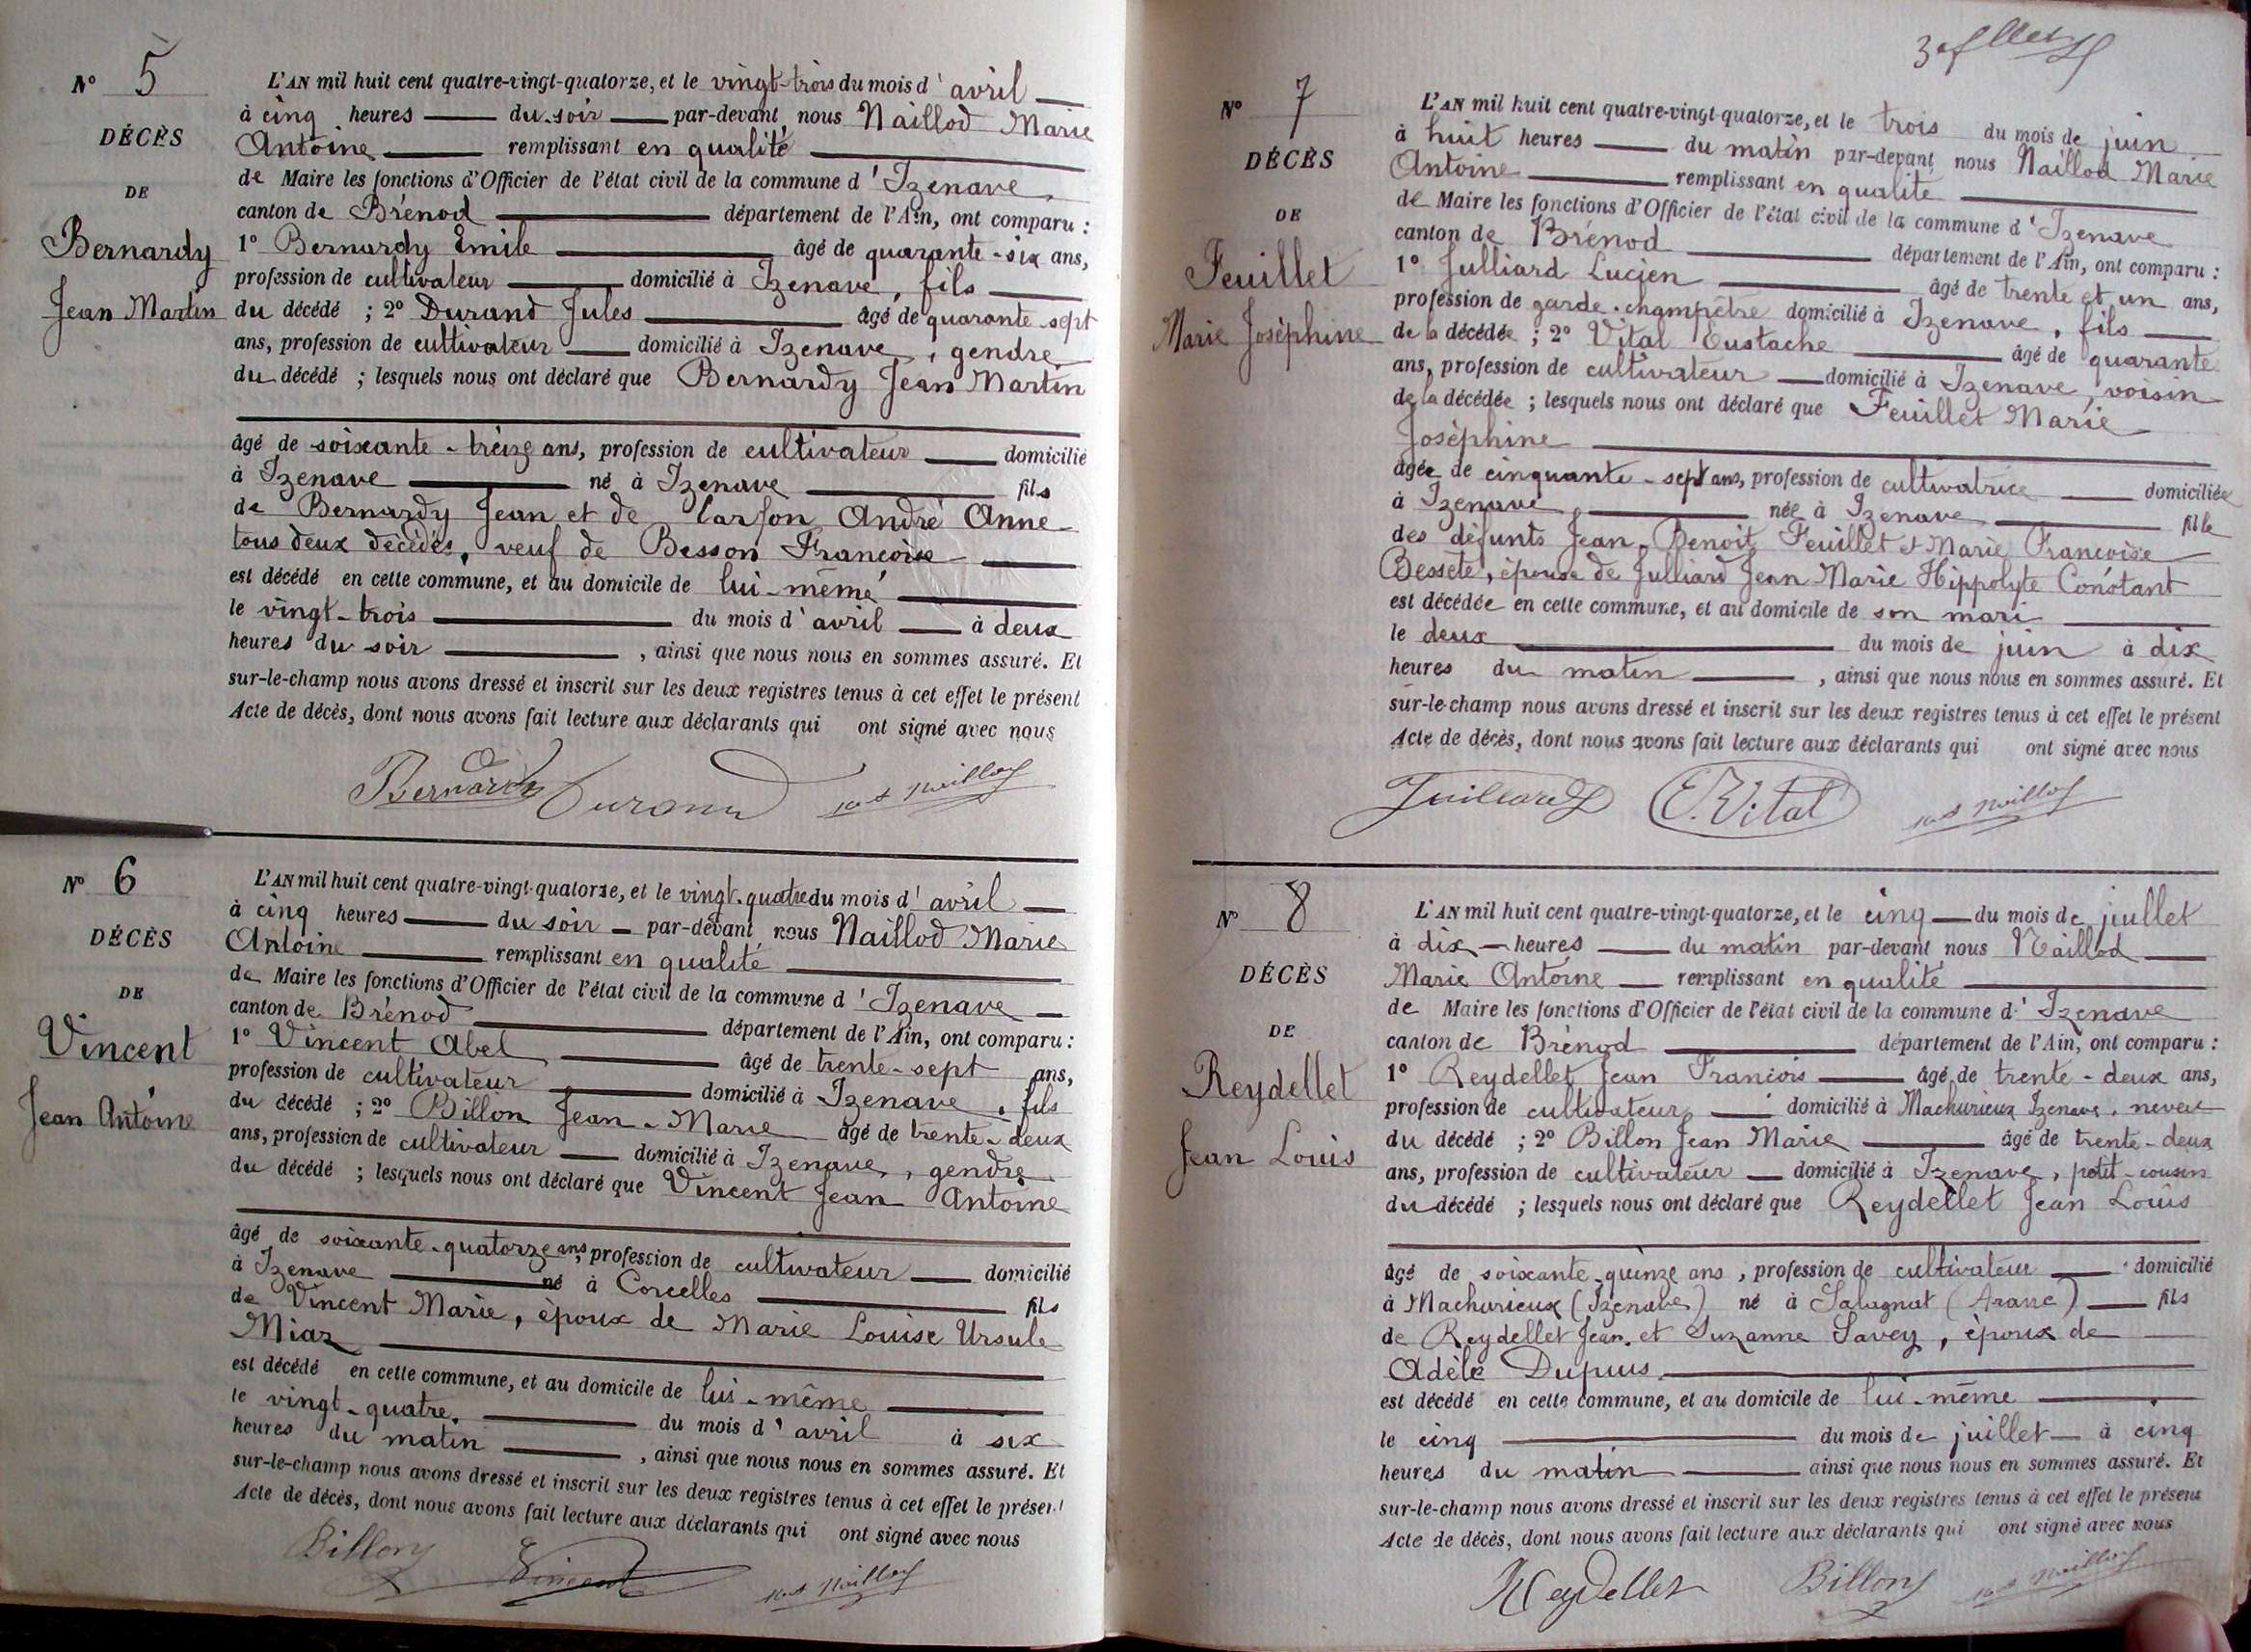 N° 5
DÉCÈS
DE
Bernardy
Jean Martin
L'AN mil huit cent quatre-vingt-quatorze, et le vingt-trois du mois d'avril
à cinq heures du soir par-devant nous Naillod Marie
Antoine remplissant en qualité
de Maire les fonctions d'Officier de l'état civil de la commune d'Izenave,
canton de Brénod département de l'Ain, ont comparu :
1° Bernardy Emile âgé de quarante-six ans,
profession de cultivateur domicilié à Izenave, fils
du décédé ; 2° Durand Jules âgé de quarante-sept
ans, profession de cultivateur domicilié à Izenave, gendre
du décédé ; lesquels nous ont déclaré que Bernardy Jean Martin
âgé de soixante-treize ans, profession de cultivateur domicilié
à Izenave né à Izenave fils
de Bernardy Jean et de Carfon André Anne
tous deux décédés, veuf de Besson Françoise
est décédé en cette commune, et au domicile de lui-même
le vingt-trois du mois d'avril à deux
heures du soir , ainsi que nous nous en sommes assuré. Et
sur-le-champ nous avons dressé et inscrit sur les deux registres tenus à cet effet le présent
Acte de décès, dont nous avons fait lecture aux déclarants qui ont signé avec nous
Bernardy Durand Naillod
N° 6
DÉCÈS
DE
Vincent
Jean Antoine
L'AN mil huit cent quatre-vingt-quatorze, et le vingt-quatre du mois d'avril
à cinq heures du soir par-devant nous Naillod Marie
Antoine remplissant en qualité
de Maire les fonctions d'Officier de l'état civil de la commune d'Izenave
canton de Brénod département de l'Ain, ont comparu :
1° Vincent Abel âgé de trente-sept ans,
profession de cultivateur domicilié à Izenave, fils
du décédé ; 2° Billon Jean-Marie âgé de trente-deux
ans, profession de cultivateur domicilié à Izenave, gendre
du décédé ; lesquels nous ont déclaré que Vincent Jean Antoine
âgé de soixante-quatorze ans, profession de cultivateur domicilié
à Izenave né à Corcelles fils
de Vincent Marie, époux de Marie Louise Ursule
Miaz
est décédé en cette commune, et au domicile de lui-même
le vingt-quatre, du mois d'avril à six
heures du matin , ainsi que nous nous en sommes assuré. Et
sur-le-champ nous avons dressé et inscrit sur les deux registres tenus à cet effet le présent
Acte de décès, dont nous avons fait lecture aux déclarants qui ont signé avec nous
Billon Vincent Naillod
3e
N° 7
DÉCÈS
DE
Feuillet
Marie Joséphine
L'AN mil huit cent quatre-vingt-quatorze, et le trois du mois de juin
à huit heures du matin par-devant nous Naillod Marie
Antoine remplissant en qualité
de Maire les fonctions d'Officier de l'état civil de la commune d'Izenave
canton de Brénod département de l'Ain, ont comparu :
1° Julliard Lucien âgé de trente et un ans,
profession de garde-champêtre domicilié à Izenave, fils
de la décédée ; 2° Vital Eustache âgé de quarante
ans, profession de cultivateur domicilié à Izenave, voisin
de la décédée ; lesquels nous ont déclaré que Feuillet Marie
Joséphine
âgée de cinquante-sept ans, profession de cultivatrice domiciliée
à Izenave, née à Izenave fille
des défunts Jean-Benoit Feuillet et Marie Françoise
Bessete, épouse de Julliard Jean Marie Hippolyte Constant
est décédée en cette commune, et au domicile de son mari
le deux du mois de juin à dix
heures du matin , ainsi que nous nous en sommes assuré. Et
sur-le-champ nous avons dressé et inscrit sur les deux registres tenus à cet effet le présent
Acte de décès, dont nous avons fait lecture aux déclarants qui ont signé avec nous
Juilliard E. Vital Naillod
N° 8
DÉCÈS
DE
Reydellet
Jean Louis
L'AN mil huit cent quatre-vingt-quatorze, et le cinq du mois de juillet
à dix heures du matin par-devant nous Naillod
Marie Antoine remplissant en qualité
de Maire les fonctions d'Officier de l'état civil de la commune d'Izenave
canton de Brénod département de l'Ain, ont comparu :
1° Reydellet Jean François âgé de trente-deux ans,
profession de cultivateur, domicilié à Machurieux Izenave, neveu
du décédé ; 2° Billon Jean Marie âgé de trente-deux
ans, profession de cultivateur domicilié à Izenave, petit-cousin
du décédé ; lesquels nous ont déclaré que Reydellet Jean Louis
âgé de soixante-quinze ans, profession de cultivateur domicilié
à Machurieux (Izenave) né à Salagnat (Aranc) fils
de Reydellet Jean, et Suzanne Savey, époux de
Adèle Dupuis,
est décédé en cette commune, et au domicile de lui-même
le cinq du mois de juillet à cinq
heures du matin ainsi que nous nous en sommes assuré. Et
sur-le-champ nous avons dressé et inscrit sur les deux registres tenus à cet effet le présent
Acte de décès, dont nous avons fait lecture aux déclarants qui ont signé avec nous
Reydellet Billon Naillod